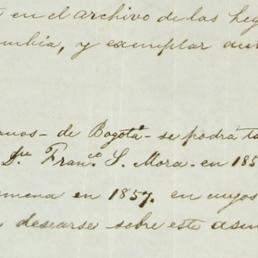 en el archivo de las leg
mbia, y exemplar au
anos - de Bogotá - se podrá ta
Dn. Franco. S. Mora - en 185
emena en 1857. en cuyos
desearse sobre este asun